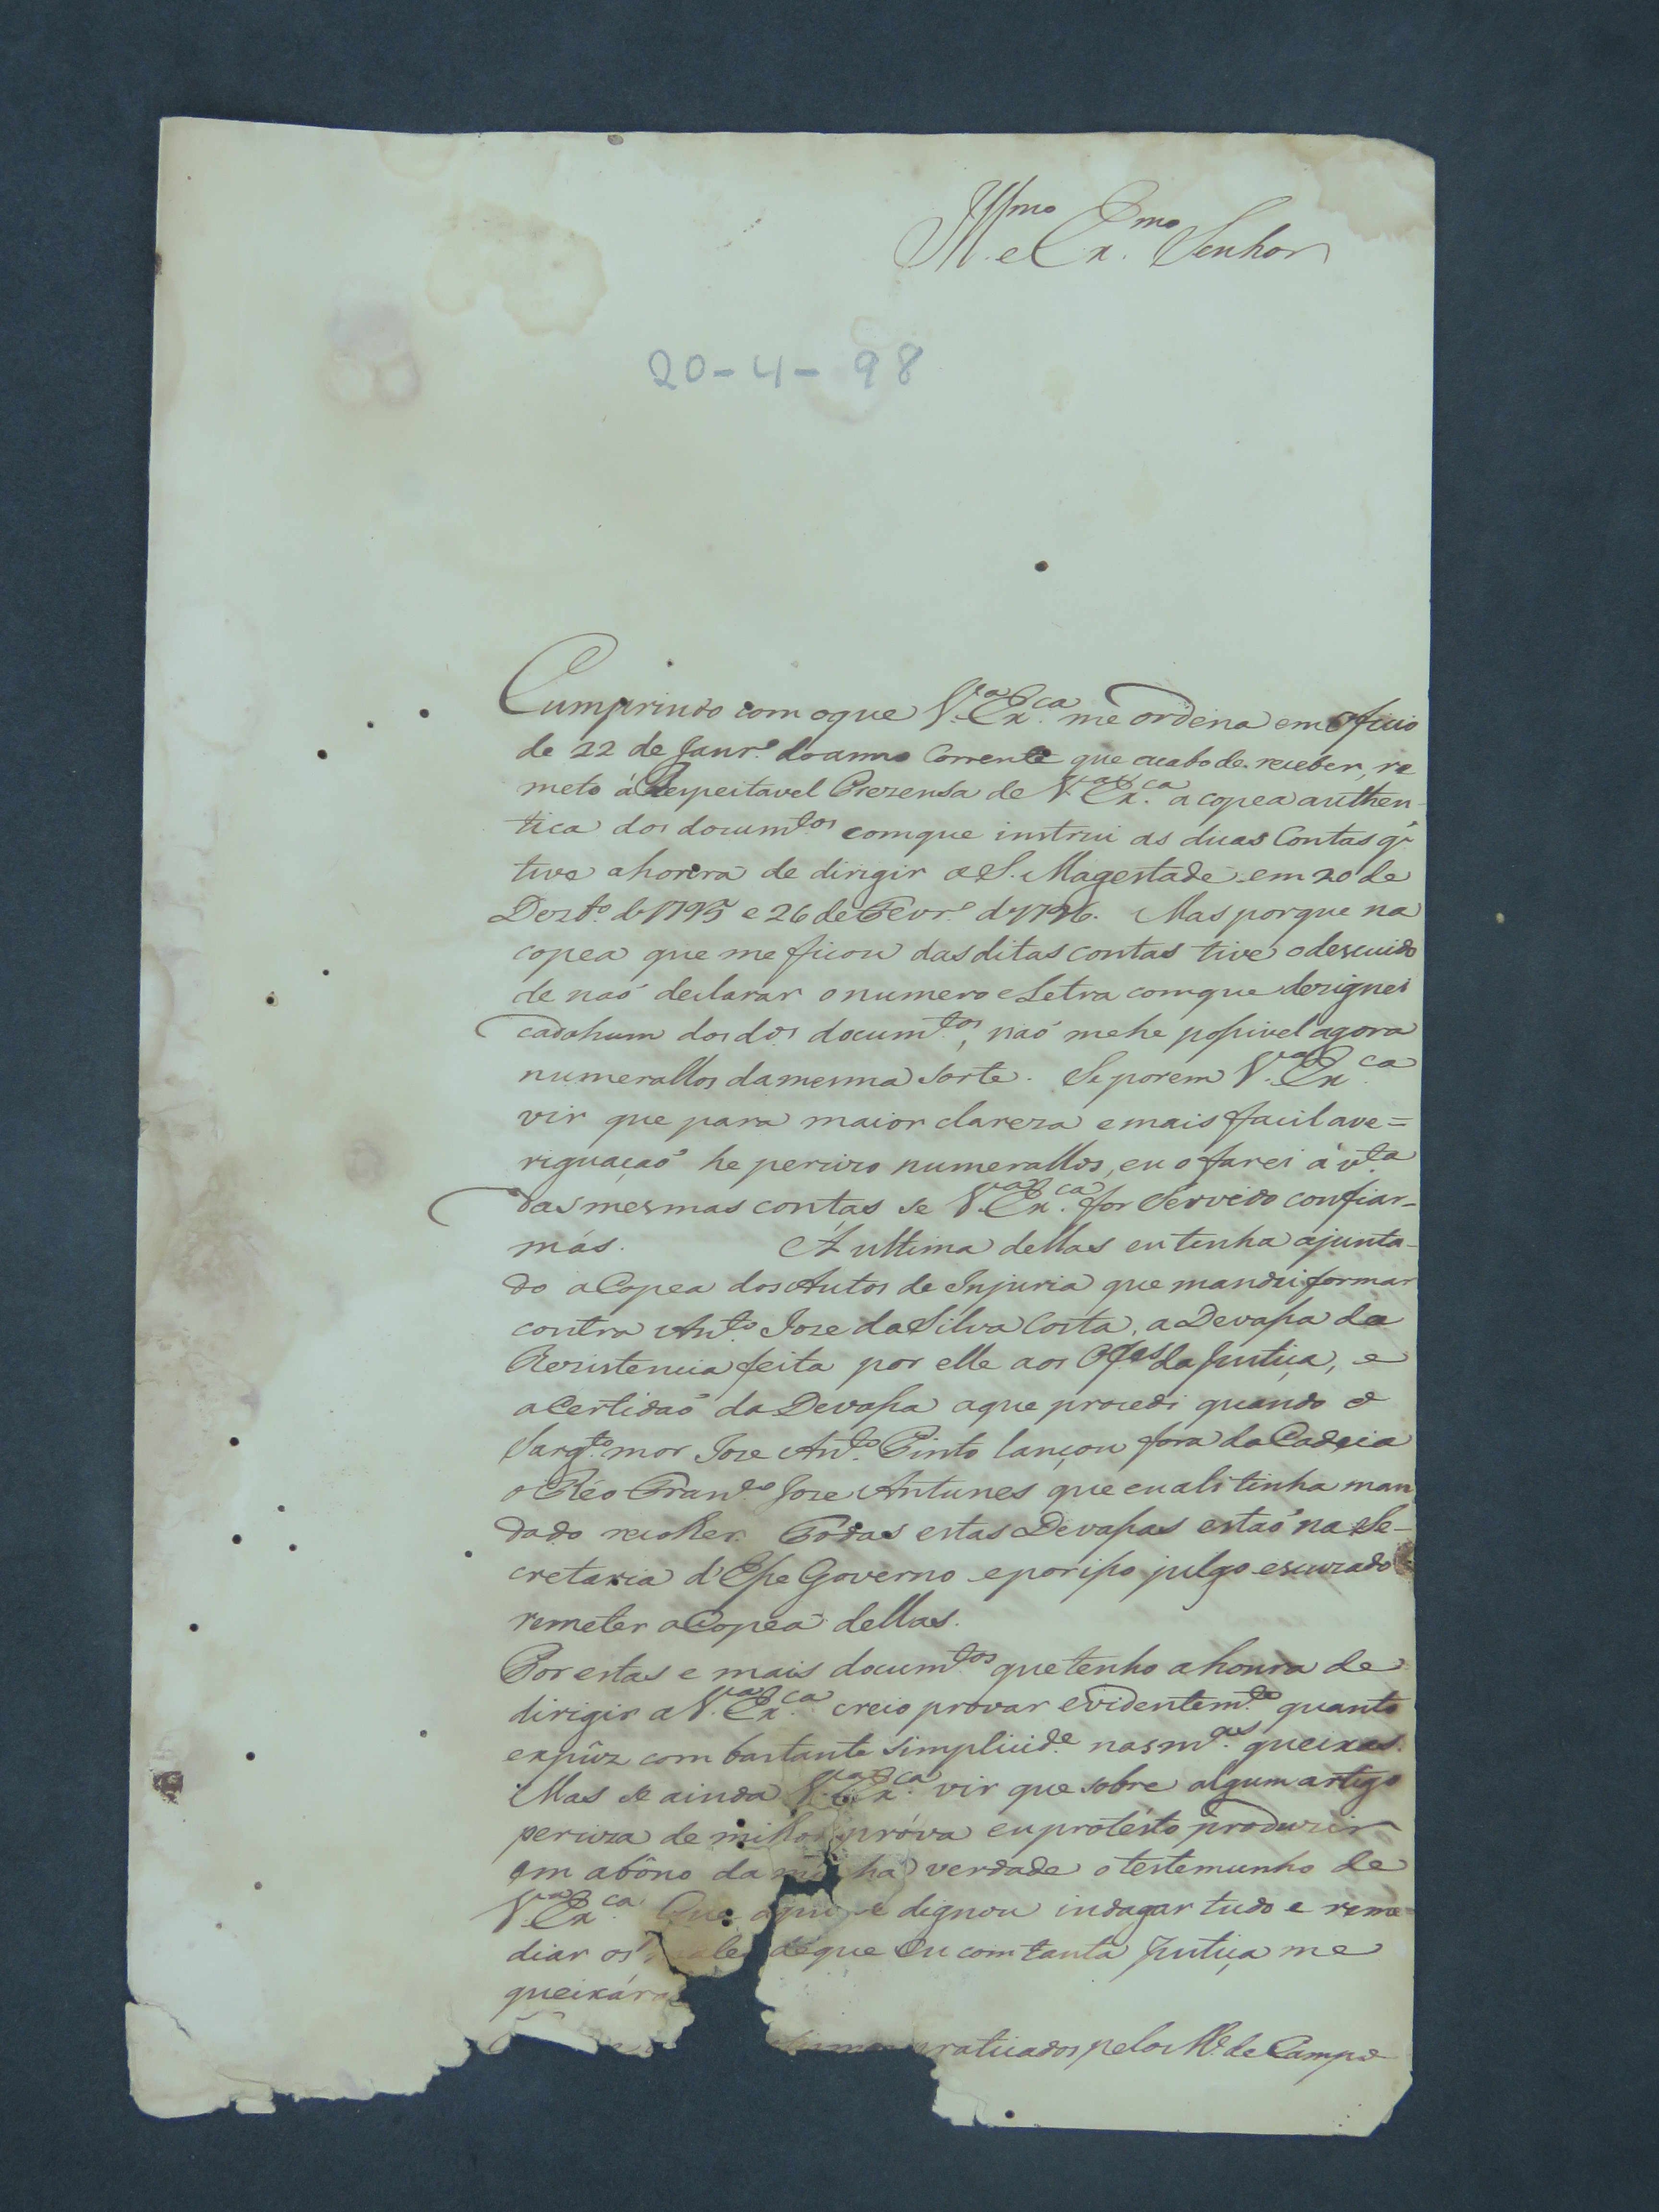 Ill.mo e Ex.mo Senhor
20-4-98
Cumprindo com o que V.a Ex.ca me ordena em Oficio
de 22 de Janr.o do anno Corrente que acabo de receber, re
meto á Respeitavel Prezensa de V.a Ex.ca a copea authen-
tica dos docum.tos com que instrui as duas Contas q.
tive a honrra de dirigir a S. Magestade em 20 de
Dezbr.o d 1795 e 26 de Fevr.o d 1796. Mas porque na
copea que me ficou das ditas contas tive o descuido
de naõ declarar o numero e Letra com que dezignei
cadahum dos d.os docum.tos, naõ me he possivel agora
numerallos da mesma Sorte. Se porem V.a Ex.ca
vir que para maior clareza e mais facil ave=
riguaçaõ he percizo numerallos, eu o farei á v.ta
das mesmas contas se V.a Ex.ca for Servido confiar-
más. Á ultima dellas eu tenha ajunta-
do a Copea dos Autos de Injuria que mandei formar
contra Ant.o Joze da Silva Costa, a Devassa da
Rezistencia feita por elle aos Of.es da Justiça, e
a Certidaõ da Devassa a que procedi quando o
Sarg.to mor Joze Ant.o Pinto lançou fora da Cadeia
o Réo Fran.co Joze Antunes que eu ali tinha man
dado recolher. Todas estas Devassas estaõ na Se-
cretaria d'Esse Governo e por isso julgo escuzado
remeter a Copea dellas.
Por estas e mais docum.tos que tenho a honra de
dirigir a V.a Ex.ca creio provar evidentem.te quanto
expûz com bastante simplicid.e nas m.mas queixas.
Mas se ainda V.a Ex.ca vir que sobre algum artigo
perciza de milhor próva eu protésto produzir
em abôno da minha verdade o testemunho de
V.a Ex.ca Que aqui se dignou indagar tudo e reme
diar os males de que Eu com tanta Justiça me
queixára
praticados pelo M.e de Campo